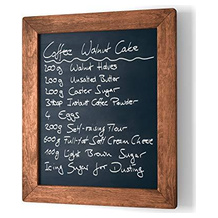 Coffee Walnut Cake
200g Walnut Halves
200g Unsalted Butter
200g Caster Sugar
3tbsp Instant Coffee Powder
4 Eggs
200g Self-raising Flour
500g Full-fat Soft Cream Cheese
100g Light Brown Sugar
Icing Sugar for Dusting